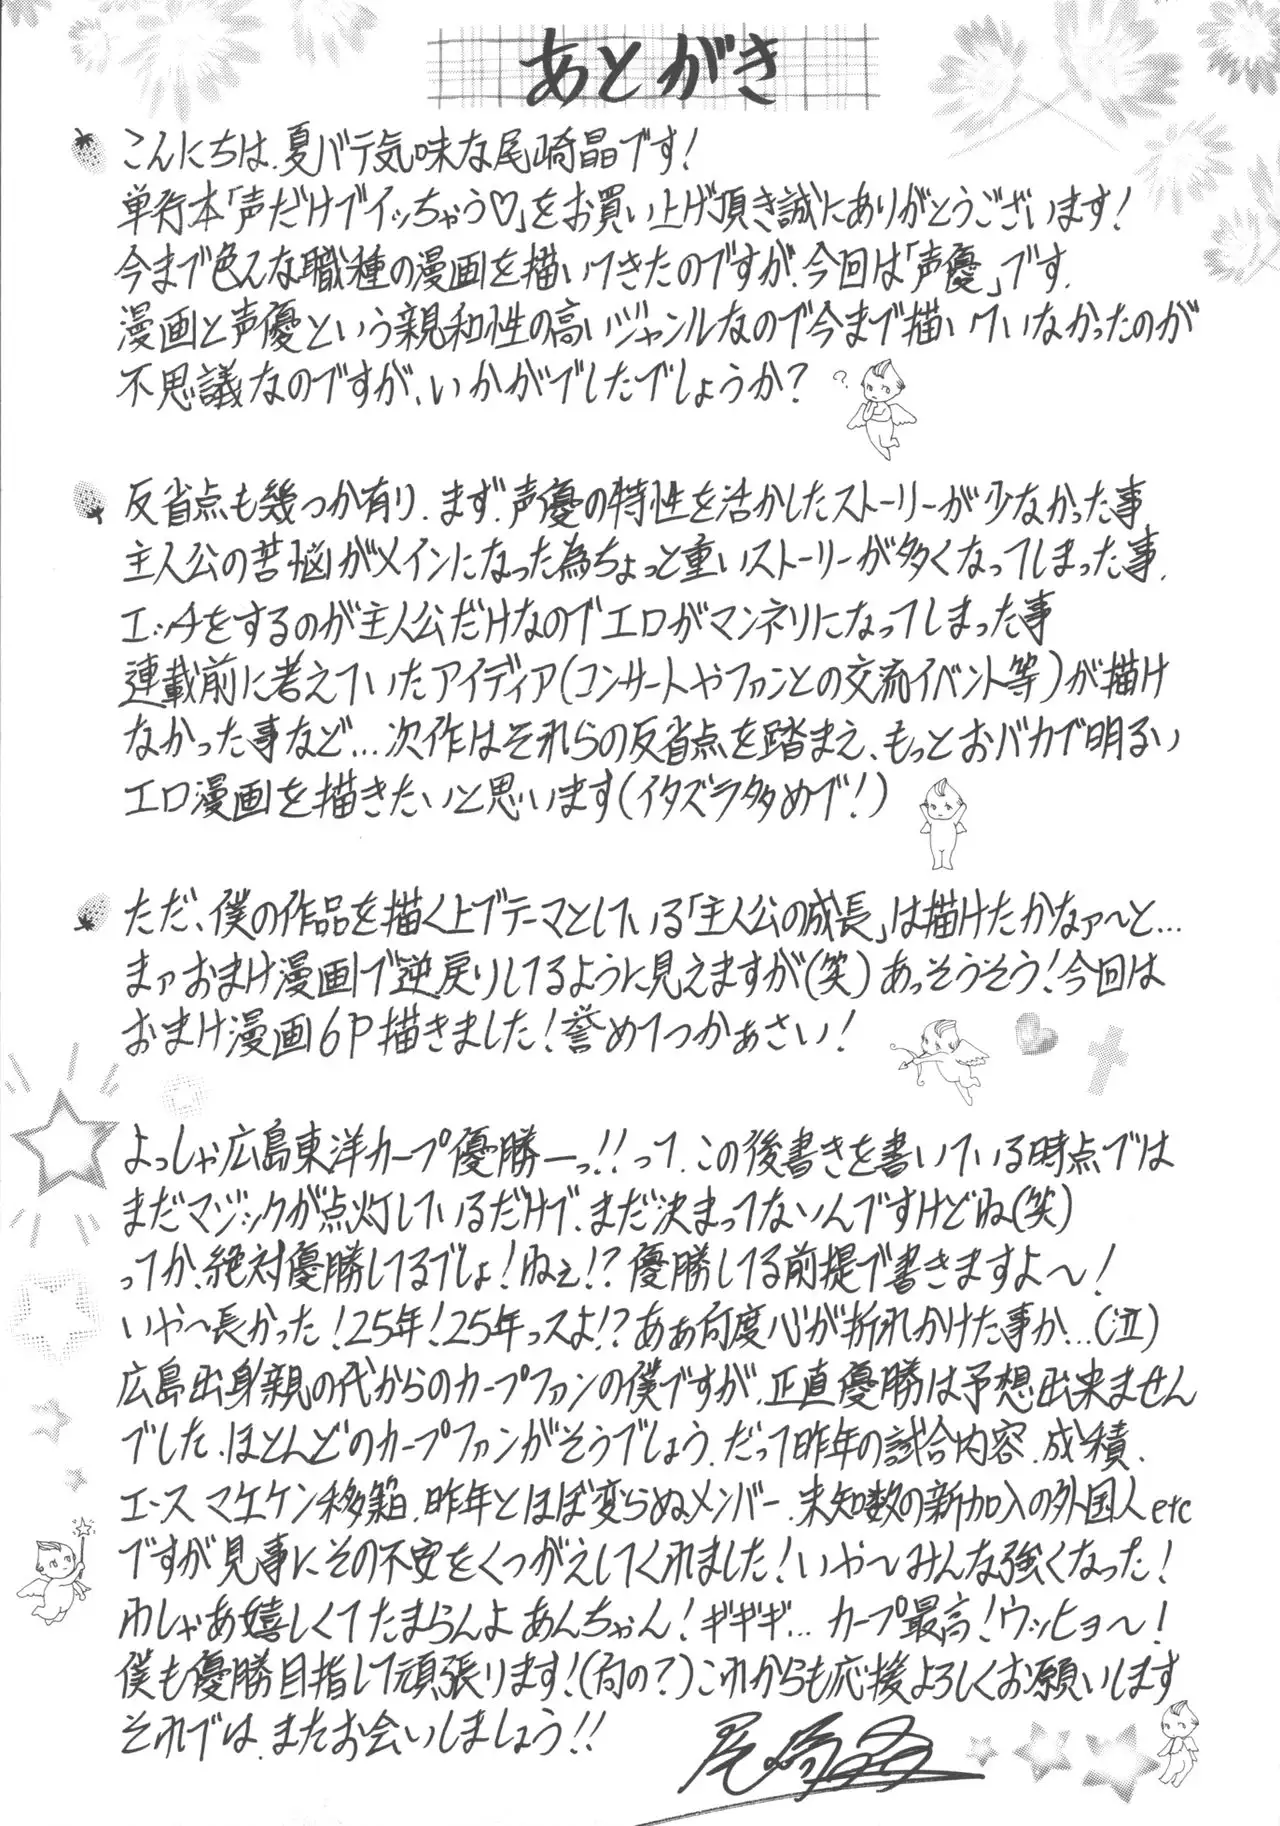 あとがき
こんにちは、夏バテ気味な尾崎晶です!
単行本「声だけでイッちゃう♡」をお買い上げ頂き誠にありがとうございます!
今まで色んな職種の漫画を描いてきたのですが、今回は「声優」です.
漫画と声優という親和性の高いジャンルなので今まで描いていなかったのが
不思議なのですが、いかがでしたでしょうか?
?
反省点も幾つか有り、まず、声優の特性を活かしたストーリーが少なかった事
主人公の苦悩がメインになった為ちょっと重いストーリーが多くなってしまった事、
エッチをするのが主人公だけなのでエロがマンネリになってしまった事
連載前に考えていたアイディア(コンサートやファンとの交流イベント等)が描け
なかった事など…次作はそれらの反省点を踏まえ、もっとおバカで明るい
エロ漫画を描きたいと思います(イタズラ多めで!)
ただ、僕の作品を描く上でテーマとしている「主人公の成長」は描けたかなァ〜と…
まァおまけ漫画で逆戻りしてるように見えますが(笑)あっそうそう!今回は
おまけ漫画6P描きました!誉めてつかぁさい!
よっしゃ広島東洋カープ優勝ーっ!!って、この後書きを書いている時点では
まだマジックが点灯しているだけで、まだ決まってないんですけどね(笑)
ってか、絶対優勝してるでしょ!ねぇ!?優勝してる前提で書きますよ〜!
いや〜長かった!25年!25年っスよ!?あぁ何度心が折れかけた事か…(泣)
広島出身親の代からのカープファンの僕ですが、正直優勝は予想出来ません
でした、ほとんどのカープファンがそうでしょう、だって昨年の試合内容、成績、
エース マエケン移籍、昨年とほぼ変らぬメンバー、未知数の新加入の外国人etc
ですが見事にその不安をくつがえしてくれました!いや〜みんな強くなった!
わしゃあ嬉しくてたまらんよあんちゃん!ギギギ…カープ最高!ウッヒョ〜!
僕も優勝目指して頑張ります!(何の?)これからも応援よろしくお願いします
それでは、またお会いしましょう!!
尾崎晶